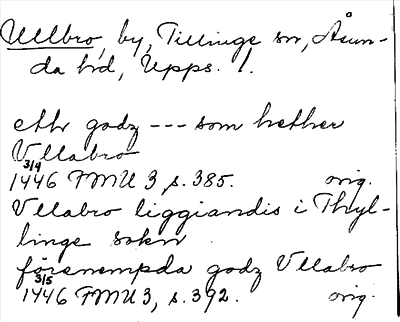 Ullbro, by, Tillinge sn, Åsun-
da hd, Upps. l.
ett godz --- som hether
Vllabro
3/4
1446 FMU 3, s. 385. orig.
Vllabro liggiandis i Thyl-
linge sokn
förenempda godz Vllabro
3/5
1446 FMU 3, s. 392. orig.